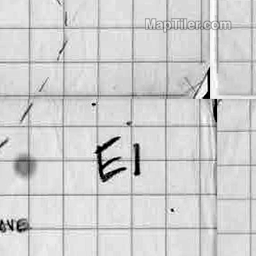 MapTiler.com
E1
AVE